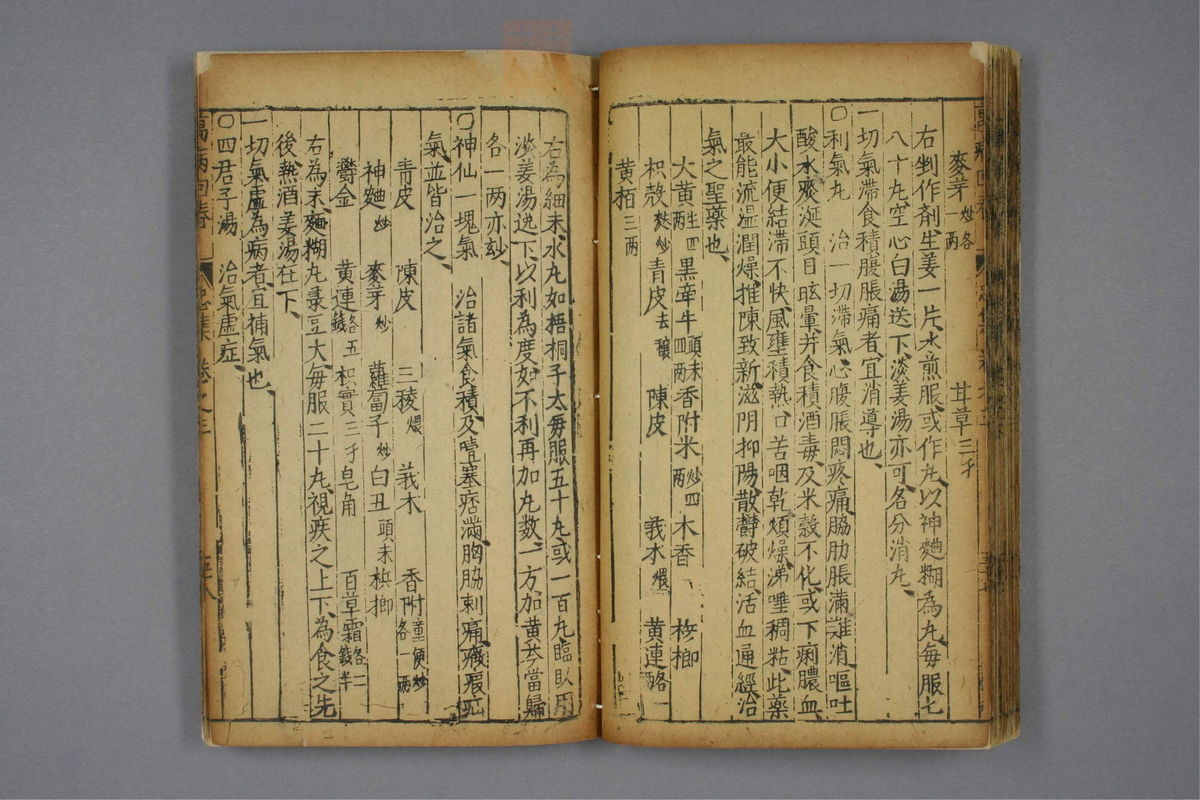 麥芽炒各一兩 甘草三才
右剉作劑生姜一片水煎服或作丸以神麯糊為丸每服七
八十丸空心白湯送下淡姜湯亦可名分消丸
一切氣滯食積腹脹痛者宜消導也
○利氣丸 治一切滯氣心腹脹悶疼痛脇肋脹滿難消嘔吐
酸水痰涎頭目眩暈并食積酒毒及米穀不化或下痢膿血
大小便結滯不快風壅積熱口苦咽乾煩燥涕唾稠粘此藥
最能流温潤燥推陳致新滋阴抑陽散欝破結活血通經治
氣之聖藥也
大黄生四兩 黒牽牛頭末四兩 香附米炒四兩 木香 梹榔
枳殼麩炒 青皮去穰 陳皮 莪木煨 黄連各一兩
黄栢三两
右為細末水丸如梧桐子大每服五十丸或一百丸臨臥用
淡姜湯送下以利為度如不利再加丸数一方加黄芩當歸
各一两亦玅
○神仙一塊氣 治諸氣食積及噎塞痞滿胸脇刺痛癥瘕疝
氣並皆治之
青皮 陳皮 三稜煨 莪木 香附童便炒各一兩
神麯炒 麥芽炒 蘿蔔子炒 白丑頭末 梹榔
欝金 黄連各五錢 枳實三才 皂角 百草霜各二錢半
右為末麵糊丸菉豆大每服二十丸視疾之上下為食之先
後熱酒姜湯任下
一切氣虛為病者宜補氣也
○四君子湯 治氣虛症
萬病回春 忠集 卷之三 五十八